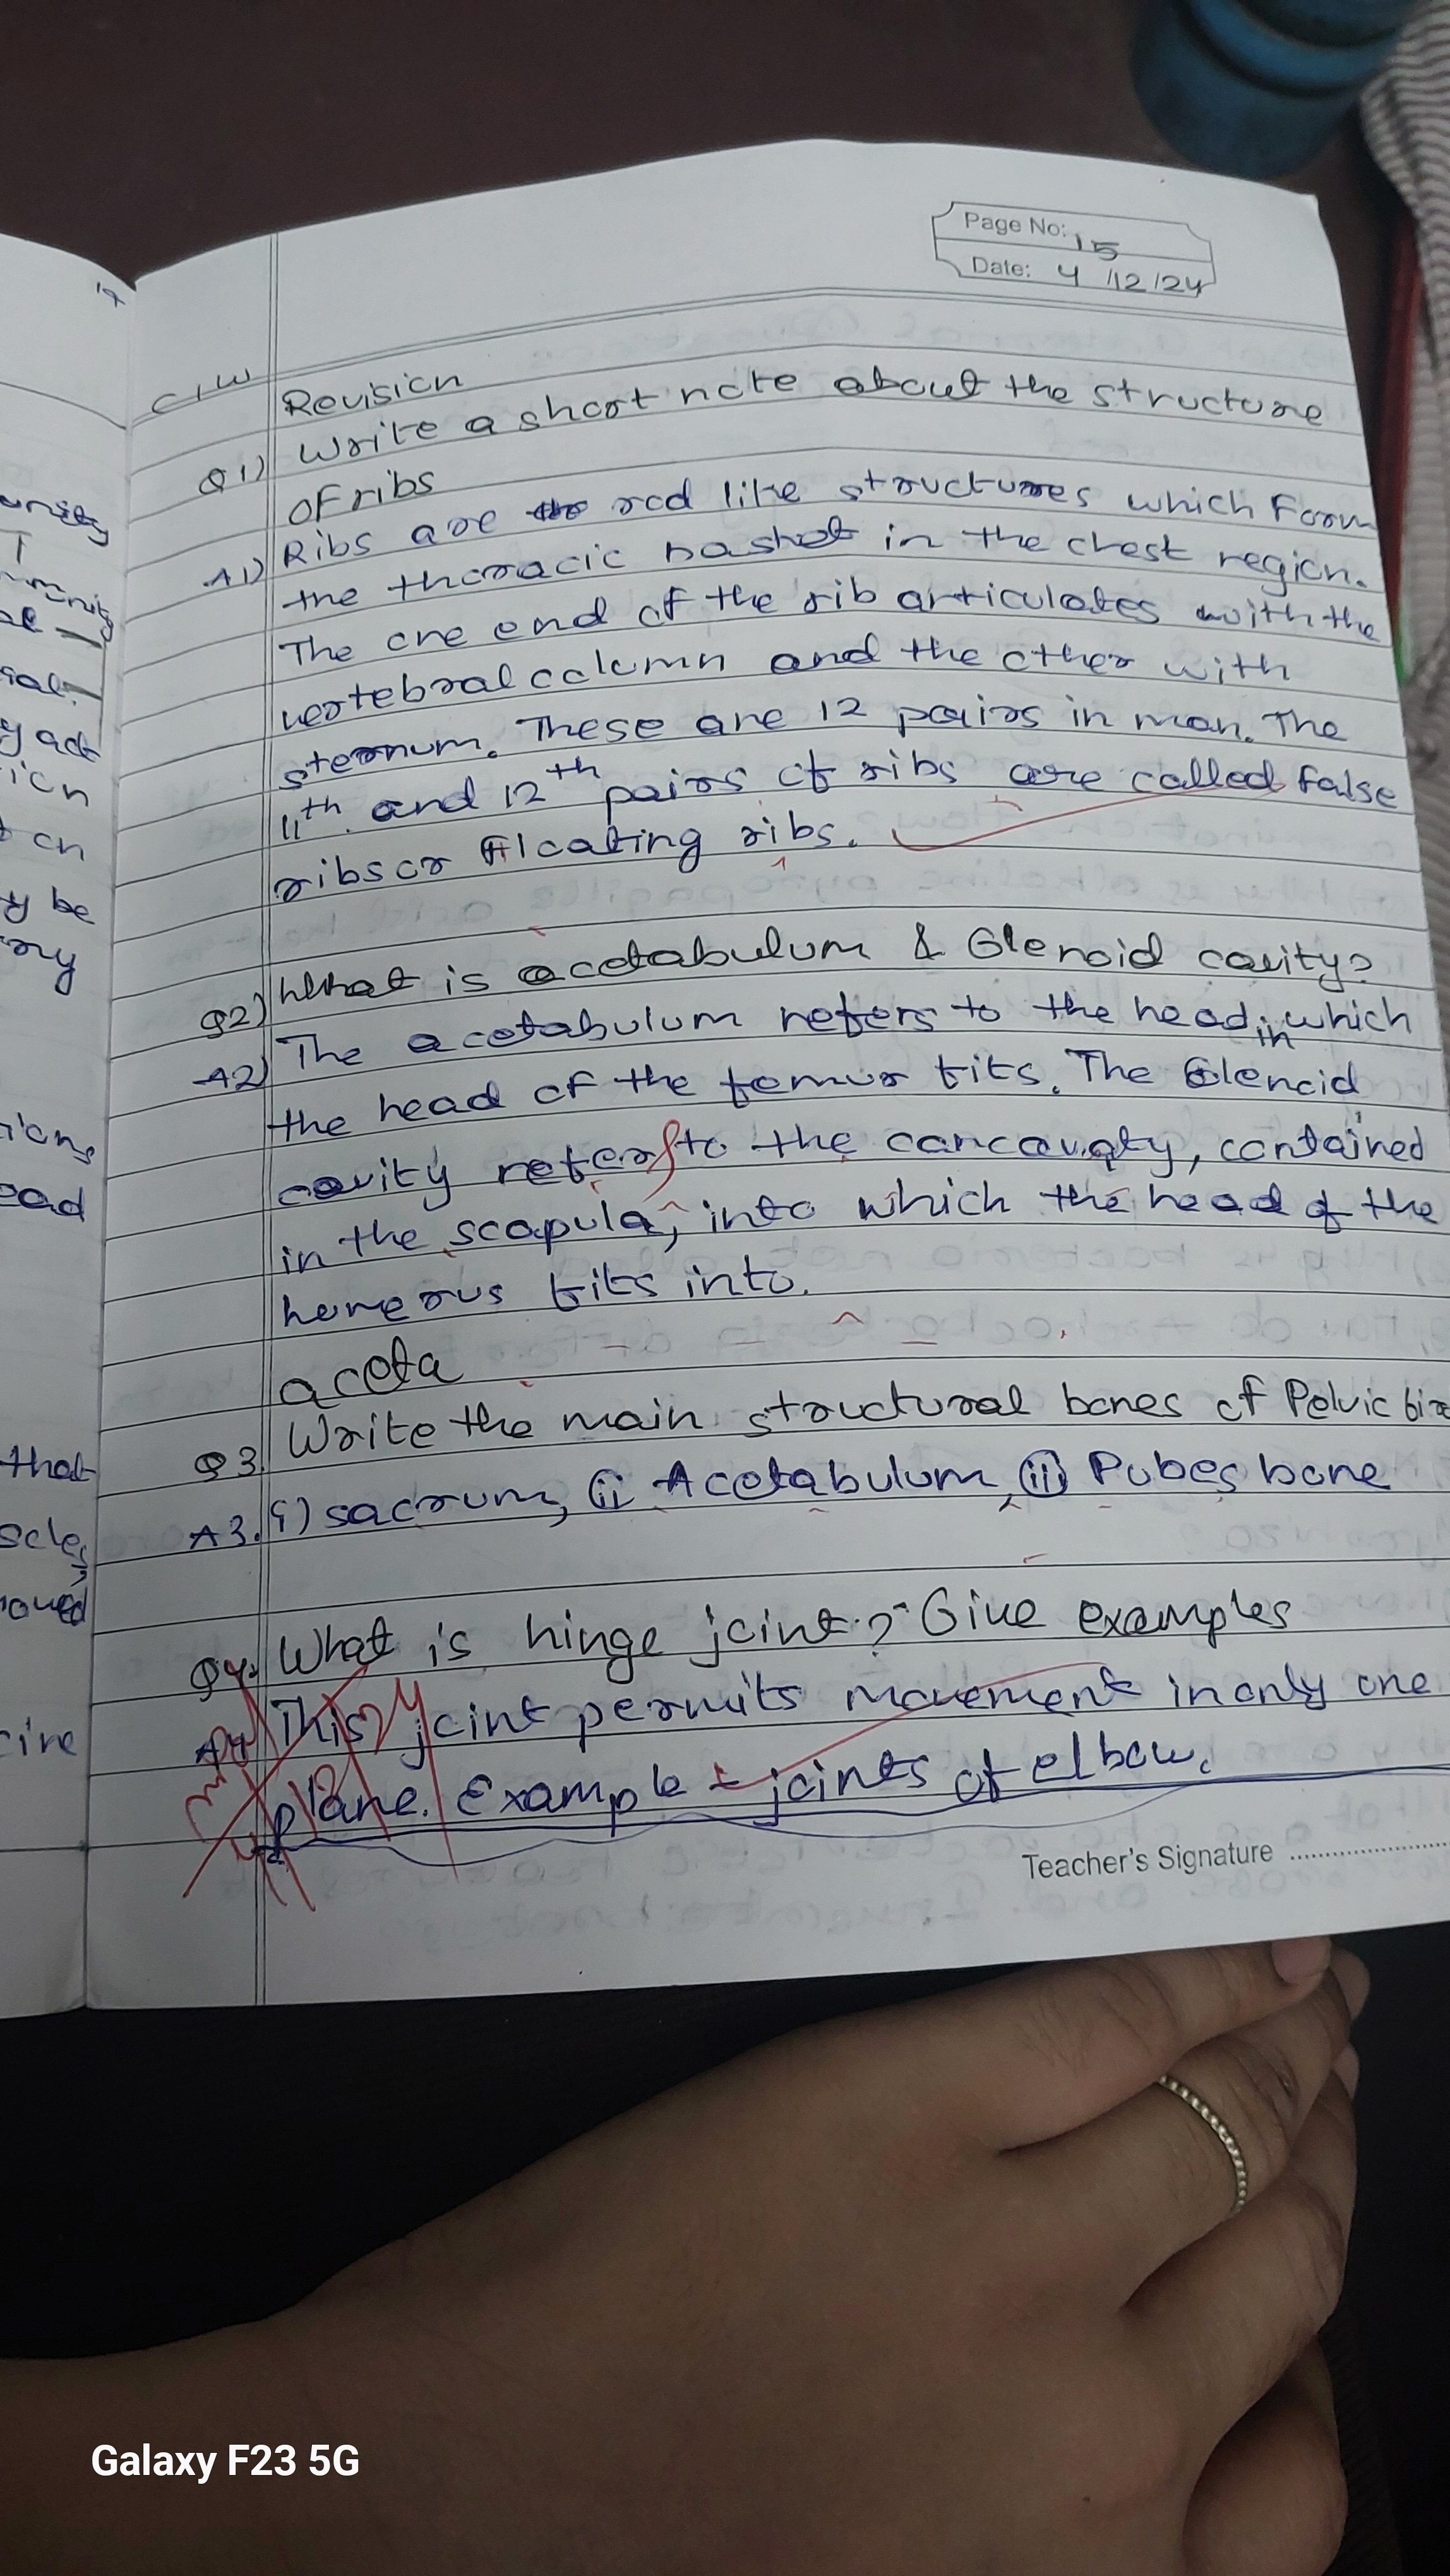 Page No: 15
Date: 4/12/24
C/W
Revision
Q1) Write a short note about the structure
of ribs
A1) Ribs are rod like structures which form
the thoracic basket in the chest region.
The one end of the rib articulates with the
vertebral column and the other with
sternum. These are 12 pairs in man. The
11th and 12th pairs of ribs are called false
ribs or floating ribs.
Q2) What is acetabulum & Glenoid cavity?
A2) The acetabulum refers to the head, in which
the head of the femur fits. The Glenoid
cavity refers to the concavity, contained
in the scapula, into which the head of the
humerous fits into.
aceta
Q3. Write the main structural bones of Pelvic
A3. i) sacrum, ii Acetabulum, iii Pubes bone
Q4. What is hinge joint? Give examples
A4. This joint permits movement in only one
plane. Example = joints of elbow.
Teacher's Signature
17
cn
y be
ory
ead
that
Galaxy F23 5G